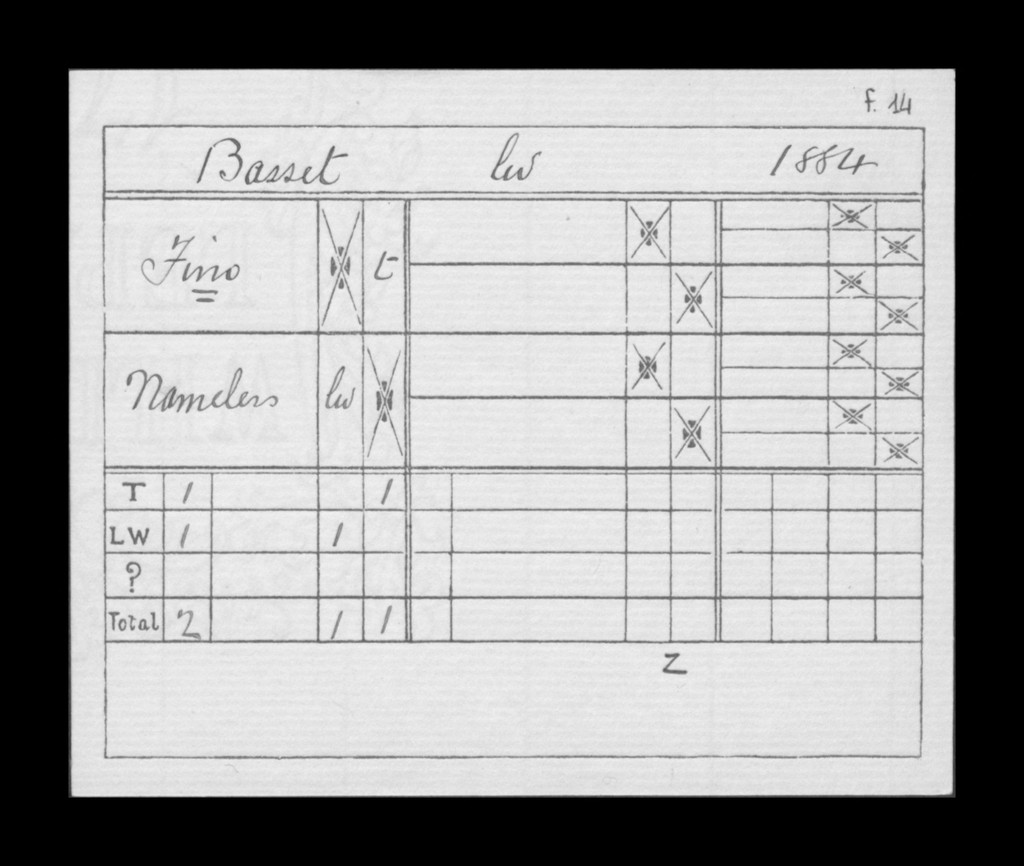 f. 14
Basset lw 1884
Fino t
Nameless lw
T 1 1
LW 1 1
?
Total 2 1 1
2